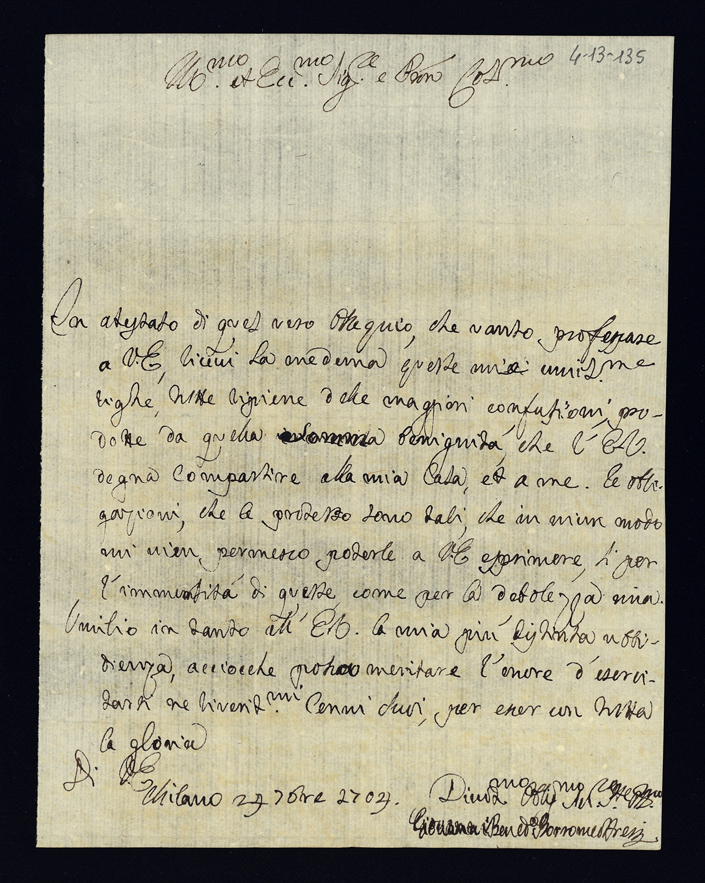 Ill.mo et Ecc.mo Sig.re e Pron Col.mo 4-13-135
In atestato di quel vero osequio, che vanto professare
a V.E, riceui la medema queste mie umil.me
righe, tutte ripiene delle magiori confusioni, pro-
dotte da quella somma benignità, che l'E.V.
degna compartire alla mia Casa, et a me. Le obli-
gazioni, che le protesto sono tali, che in niun modo
mi vien permesso poterle a V.E esprimere, si per
l'immensità di queste come per la debolezza mia.
Umilio in tanto all'E.V. la mia più distinta ubbi-
dienza, acciocche possa meritare l'onore d'eserci-
tarsi ne riverit.mi Cenni suoi, per eser con tutta
la gloria
Di V.E
Milano 27 7bre 1707. Diuot.mo Obl.mo
Giovanni Bened.o Borromeo Aresi